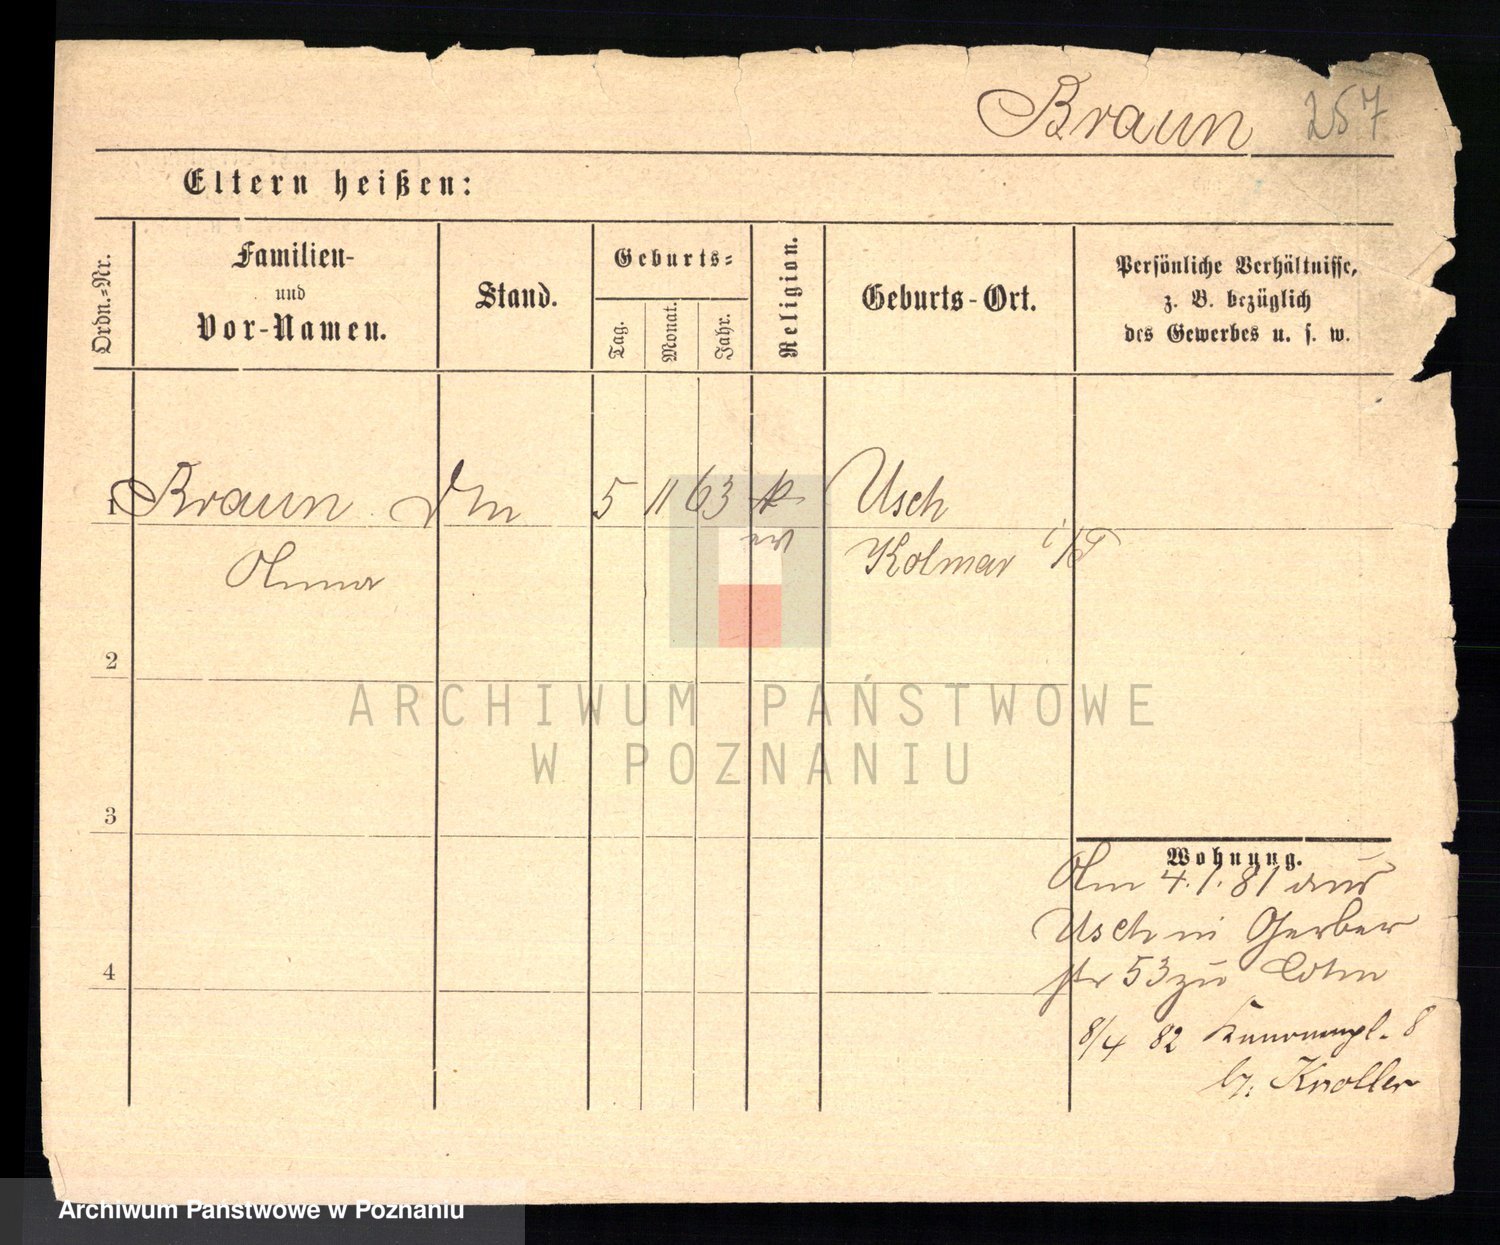 Braun 257
Eltern heißen:
Ordn.-Nr.
Familien-
und
Vor-Namen.
Stand.
Geburts-
Tag.
Monat.
Jahr.
Religion.
Geburts-Ort.
Persönliche Verhältnisse,
z. B. bezüglich
des Gewerbes u. s. w.
1 Braun 5 11 63 k Usch
ev Kolmar i/P
Anna
2
ARCHIWUM PAŃSTWOWE
W POZNANIU
3
Wohnung.
Am 4.1.81 aus
Usch in Gerber
str 53 zu
4
8/4 82 8
bei Knoller
Archiwum Państwowe w Poznaniu